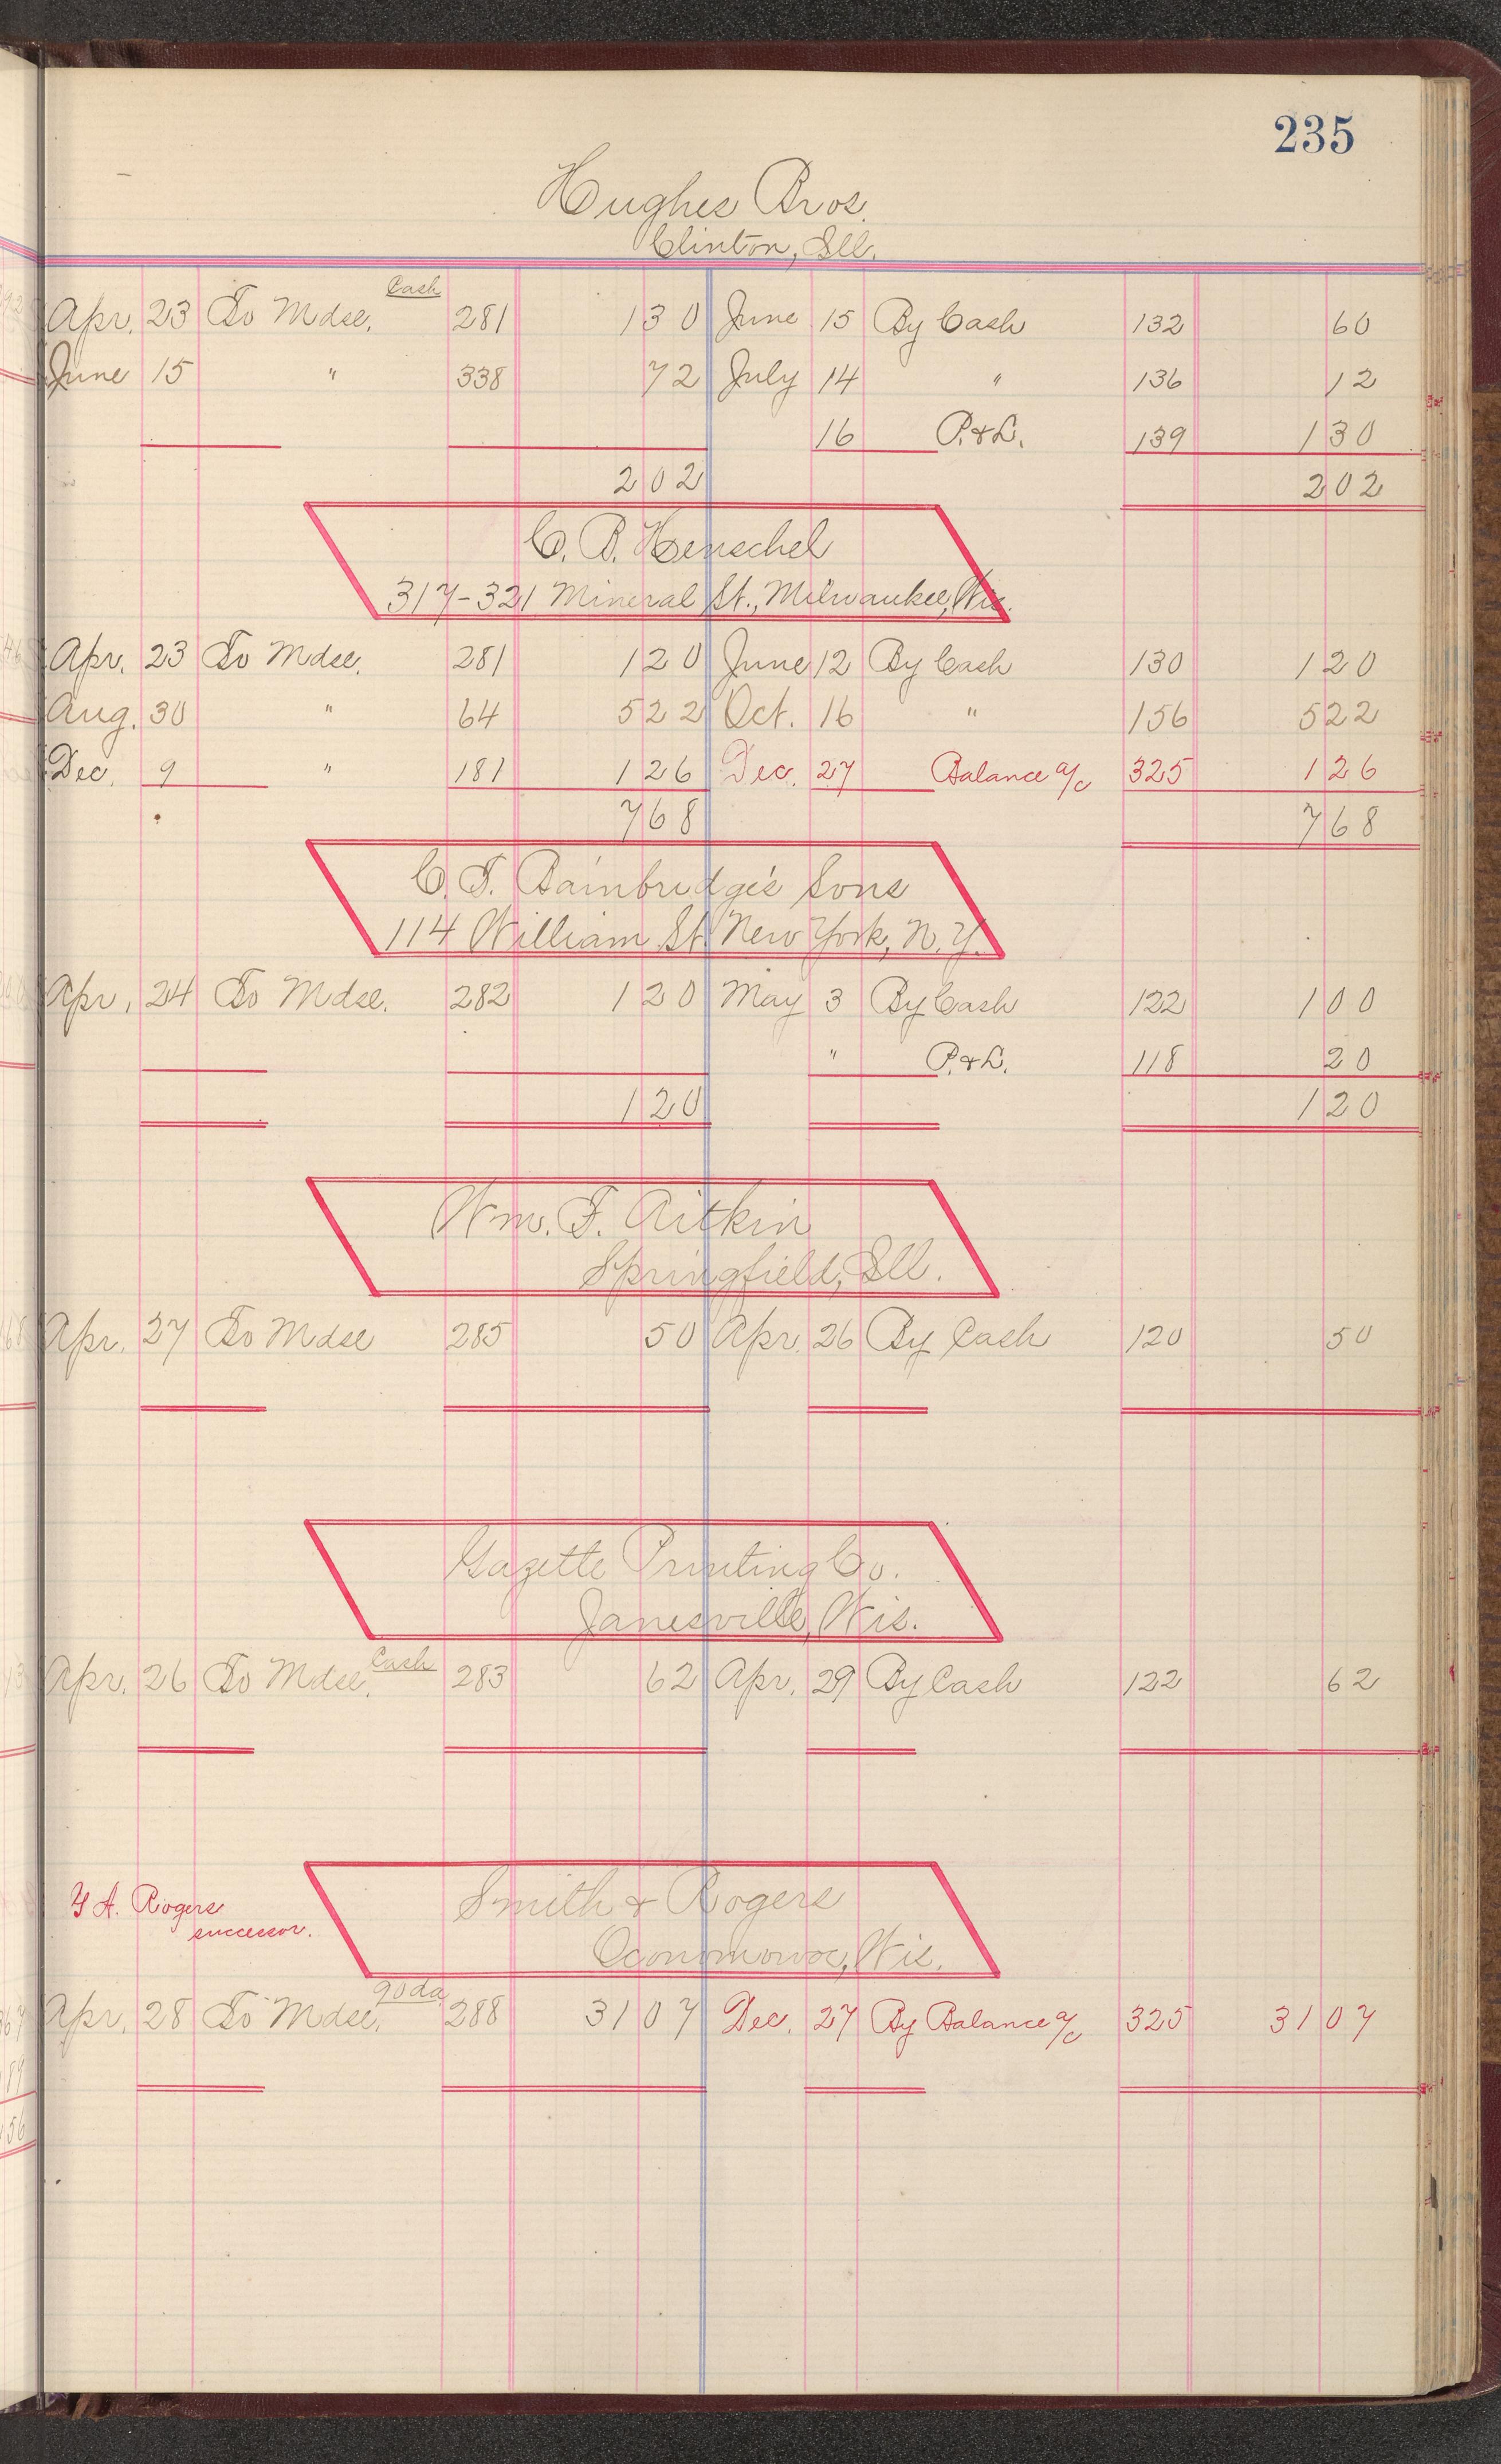 235
Hughes Bros.
Clinton, Ill.
Apr. 23 To Mdse. Cash 281 1 30 June 15 By Cash 132 60
June 15 " 338 72 July 14 " 136 12
16 P. & L. 139 1 30
2 02 2 02
C. B. Henschel
317-321 Mineral St., Milwaukee, Wis.
Apr. 23 To Mdse. 281 1 20 June 12 By Cash 130 1 20
Aug. 30 " 64 5 22 Oct. 16 " 156 5 22
Dec. 9 " 181 1 26 Dec. 27 Balance a/c 325 1 26
7 68 7 68
C. T. Bainbridge's Sons
114 William St. New York, N.Y.
Apr. 24 To Mdse. 282 1 20 May 3 By Cash 122 1 00
" P. & L. 118 20
1 20 1 20
Wm. F. Aitkin
Springfield, Ill.
Apr. 27 To Mdse 285 50 Apr. 26 By Cash 120 50
Gazette Printing Co.
Janesville, Wis.
Apr. 26 To Mdse. Cash 283 62 Apr. 29 By Cash 122 62
Smith & Rogers
Oconomowoc, Wis.
A. Rogers
successor.
Apr. 28 To Mdse. 90 da 288 31 07 Dec. 27 By Balance a/c 325 31 07